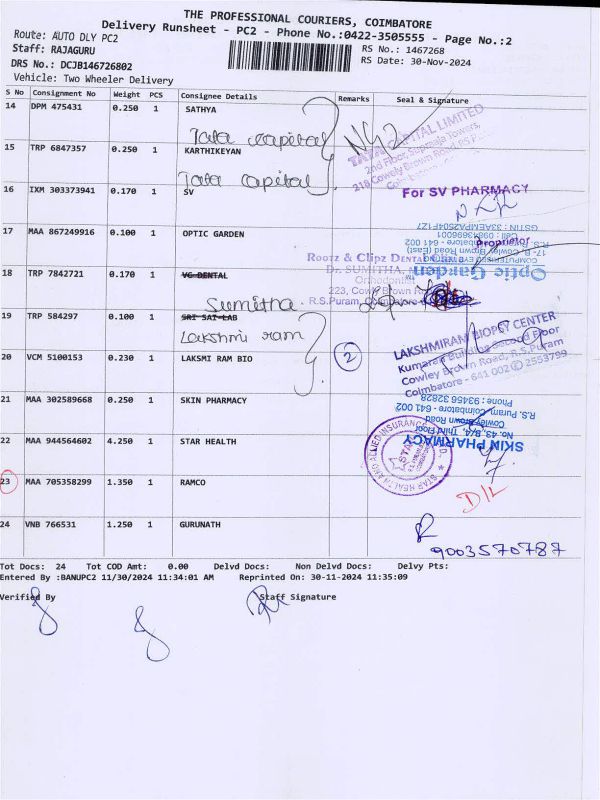 THE PROFESSIONAL COURIERS, COIMBATORE
Delivery Runsheet - PC2 - Phone No.:0422-3505555 - Page No.:2
Route: AUTO DLY PC2
Staff: RAJAGURU
RS No.: 1467268
DRS No.: DCJB146726802
RS Date: 30-Nov-2024
Vehicle: Two Wheeler Delivery
S No Consignment No Weight PCS Consignee Details Remarks Seal & Signature
14 DPM 475431 0.250 1 SATHYA
Tata capital
TATA CAPITAL LIMITED
2nd Floor, Towers,
218 Cowely Brown Road
15 TRP 6847357 0.250 1 KARTHIKEYAN
Tata capital
16 IXM 303373941 0.170 1 SV
For SV PHARMACY
Proprietor
17 MAA 867249916 0.100 1 OPTIC GARDEN
Optic Garden
COMPUTERISED EYE
17-B, Cowley Brown Road (East)
R.S. Puram, Coimbatore - 641 002
GSTIN : 33AEMPA2504F1Z7
18 TRP 7842721 0.170 1 VG DENTAL
Sumitha
Rootz & Clipz Dental
Dr. SUMITHA,
Orthodontist
223, Cowley Brown
R.S.Puram, Coimbatore
19 TRP 584297 0.100 1 SRI SAI LAB
Lakshmi ram
20 VCM 5100153 0.230 1 LAKSMI RAM BIO
2
LAKSHMIRAM BIOPSY CENTER
Kumaran Building Second Floor
Cowley Brown Road, R.S.Puram
Coimbatore - 641 002 2553799
21 MAA 302589668 0.250 1 SKIN PHARMACY
SKIN PHARMACY
Third Floor
Cowley Brown Road
R.S. Puram, Coimbatore - 641 002
Phone : 93456 32828
22 MAA 944564602 4.250 1 STAR HEALTH
STAR HEALTH AND ALLIED INSURANCE
23 MAA 705358299 1.350 1 RAMCO
D/L
24 VNB 766531 1.250 1 GURUNATH
9003570787
Tot Docs: 24 Tot COD Amt: 0.00 Delvd Docs: Non Delvd Docs: Delvy Pts:
Entered By :BANUPC2 11/30/2024 11:34:01 AM Reprinted On: 30-11-2024 11:35:09
Verified By Staff Signature